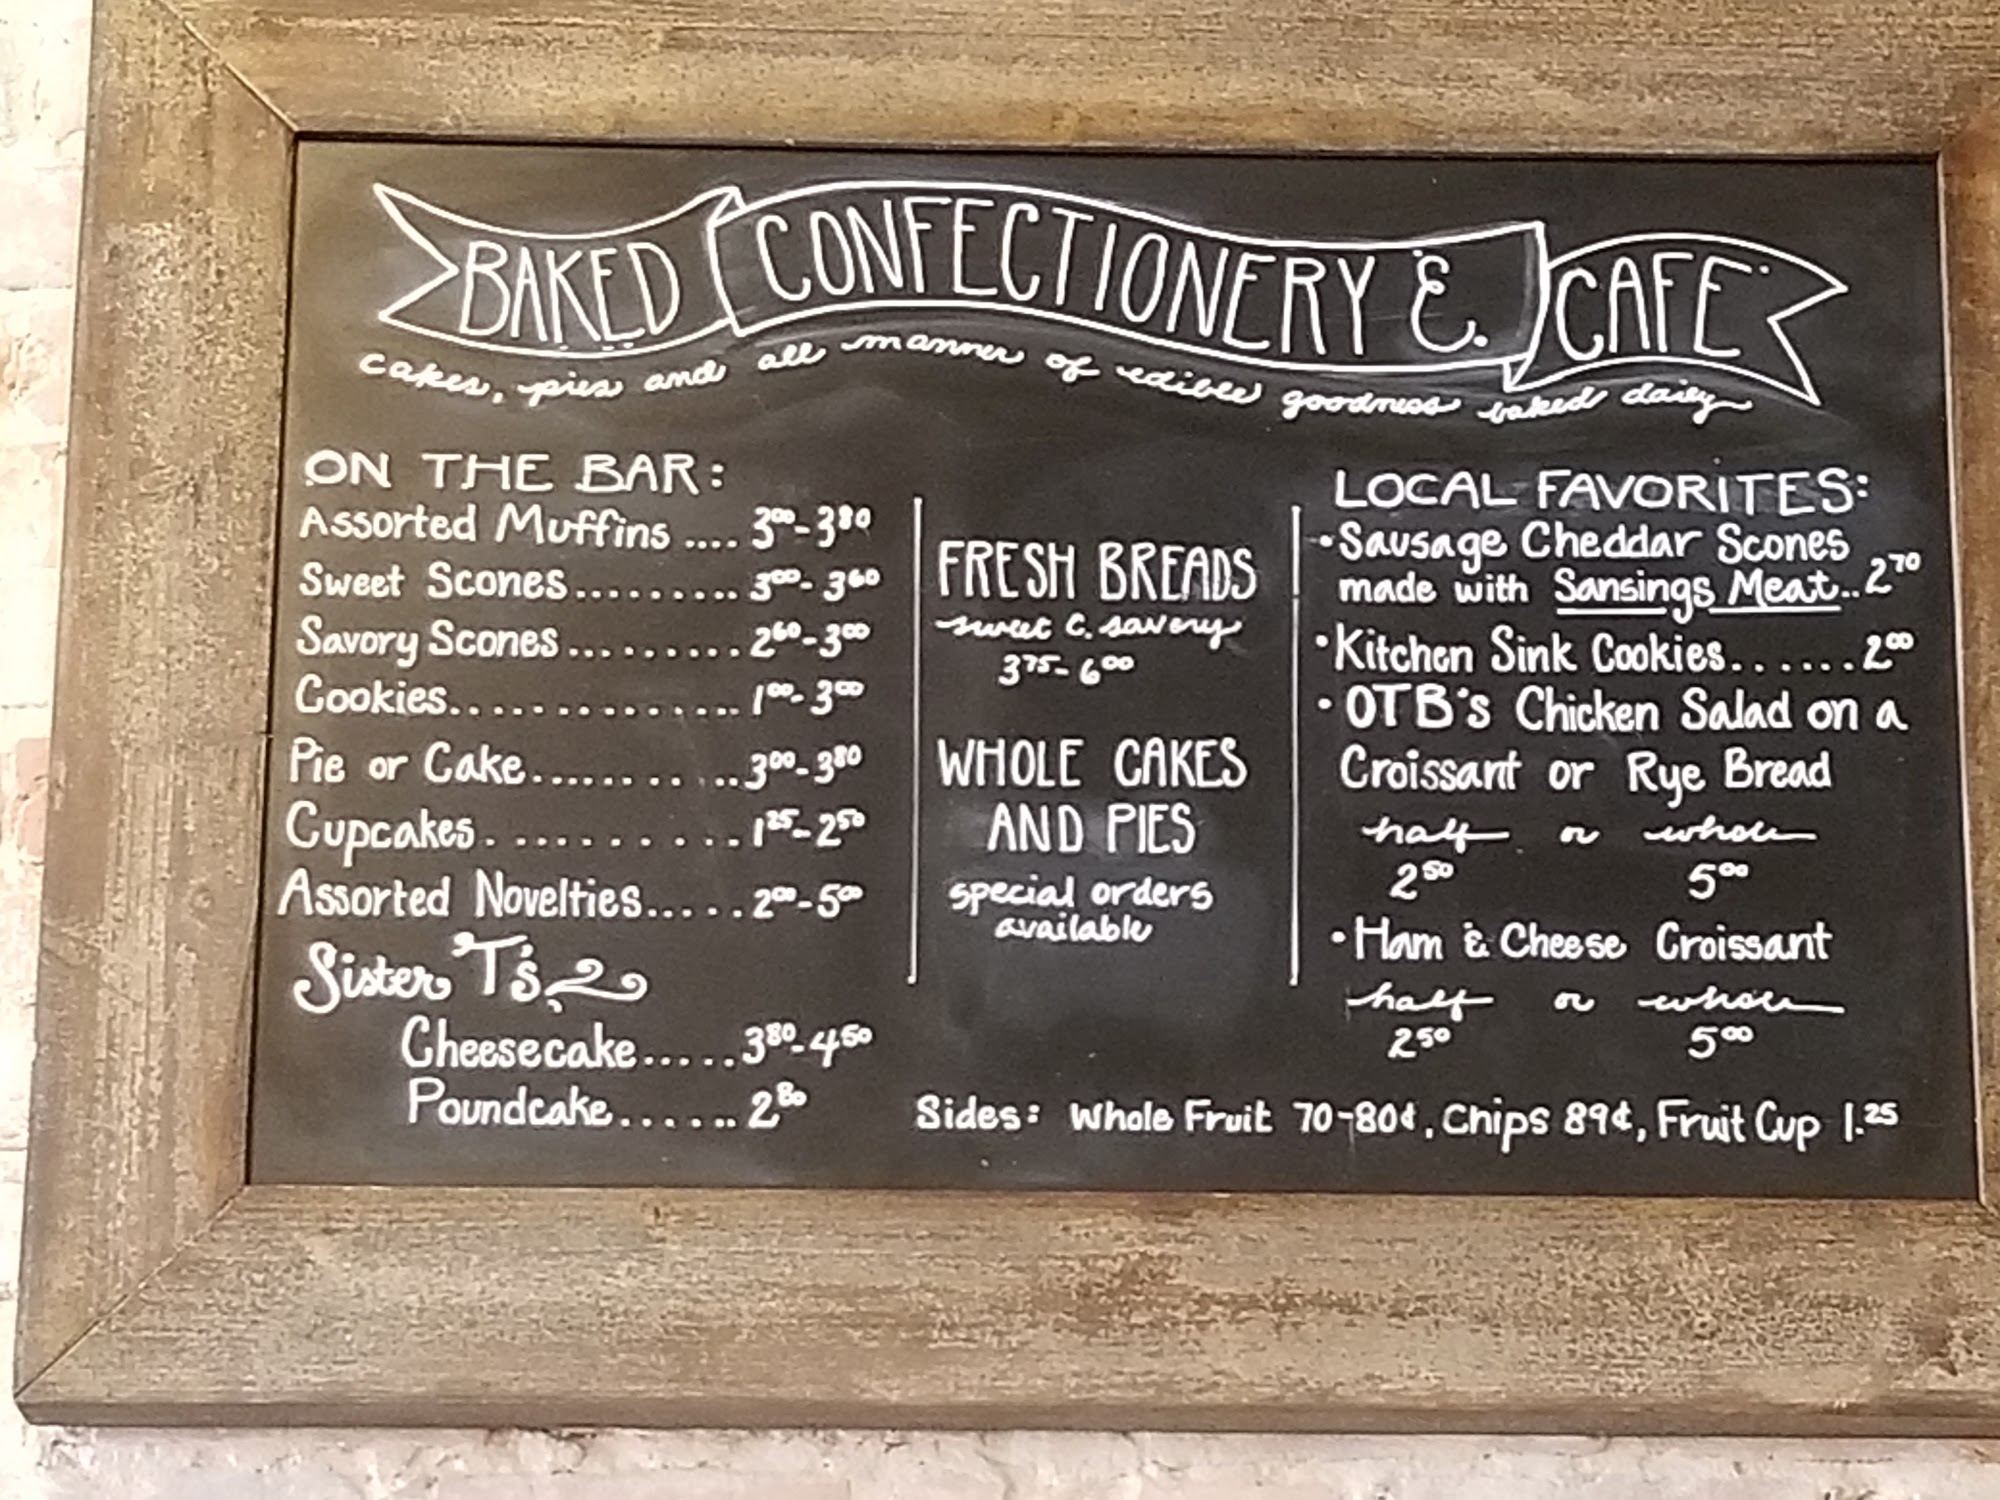 BAKED CONFECTIONERY & CAFE
cakes, pies and all manner of edible goodness baked daily
ON THE BAR:
Assorted Muffins .... 3⁰⁰-3⁸⁰
Sweet Scones......... 3⁰⁰-3⁶⁰
Savory Scones......... 2⁶⁰-3⁰⁰
Cookies............... 1⁰⁰-3⁰⁰
Pie or Cake........... 3⁰⁰-3⁸⁰
Cupcakes.......... 1²⁵-2⁵⁰
Assorted Novelties..... 2⁰⁰-5⁰⁰
Sister T's
Cheesecake..... 3⁸⁰-4⁵⁰
Poundcake...... 2⁸⁰
FRESH BREADS
sweet & savory
3⁷⁵-6⁰⁰
WHOLE CAKES
AND PIES
special orders
available
LOCAL FAVORITES:
•Sausage Cheddar Scones
made with Sansings Meat..2⁷⁰
•Kitchen Sink Cookies......2⁰⁰
•OTB's Chicken Salad on a
Croissant or Rye Bread
half or whole
2⁵⁰ 5⁰⁰
•Ham & Cheese Croissant
half or whole
2⁵⁰ 5⁰⁰
Sides: Whole Fruit 70-80¢, Chips 89¢, Fruit Cup 1.²⁵